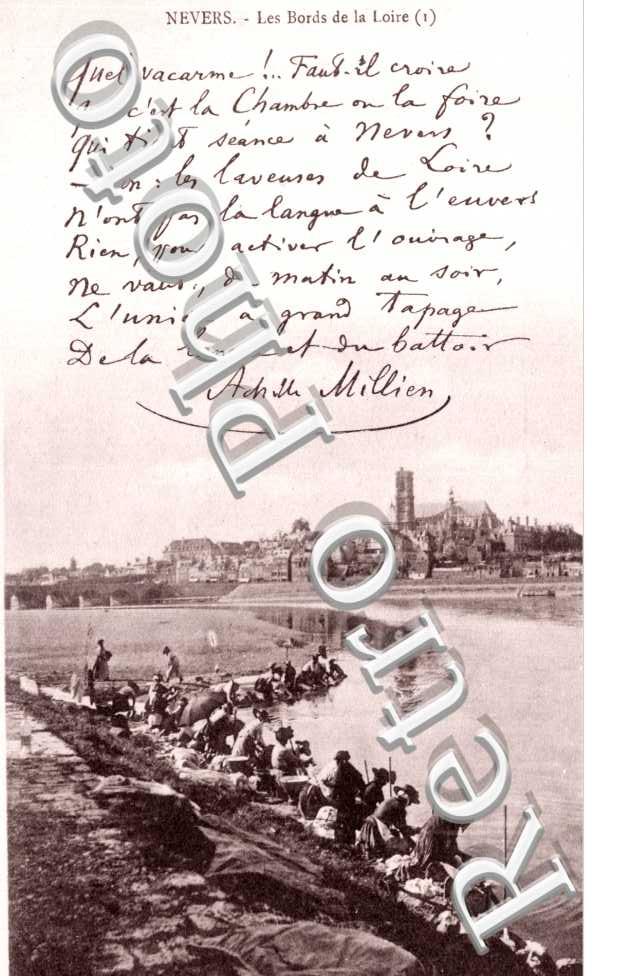 NEVERS. - Les Bords de la Loire (1)
Quel vacarme !.. Faut-il croire
c'est la Chambre ou la foire
Qui tient séance à Nevers ?
— Non : les laveuses de Loire
N'ont pas la langue à l'envers
Rien, pour activer l'ouvrage,
Ne vaut, du matin au soir,
grand tapage
De la langue et du battoir
Achille Millien
Retro Photo